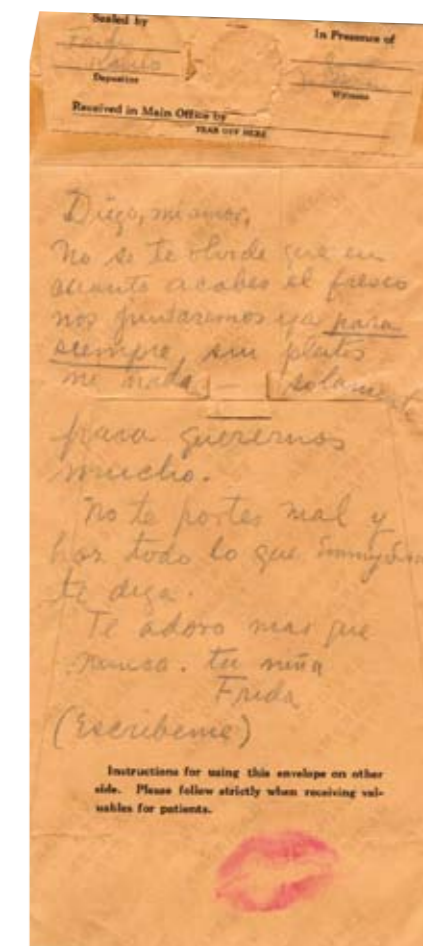 Sealed by
In Presence of
Frida
Kahlo
Depositor
Witness
Received in Main Office by
TEAR OFF HERE
Diego, mi amor,
No se te olvide que en
cuanto acabes el fresco
nos juntaremos ya para
siempre, sin pleitos
ni nada, solamente
para querernos
mucho.
No te portes mal y
haz todo lo que Emmy Lou
te diga.
Te adoro mas que
nunca. tu niña
Frida
(Escribeme)
Instructions for using this envelope on other
side. Please follow strictly when receiving val-
uables for patients.